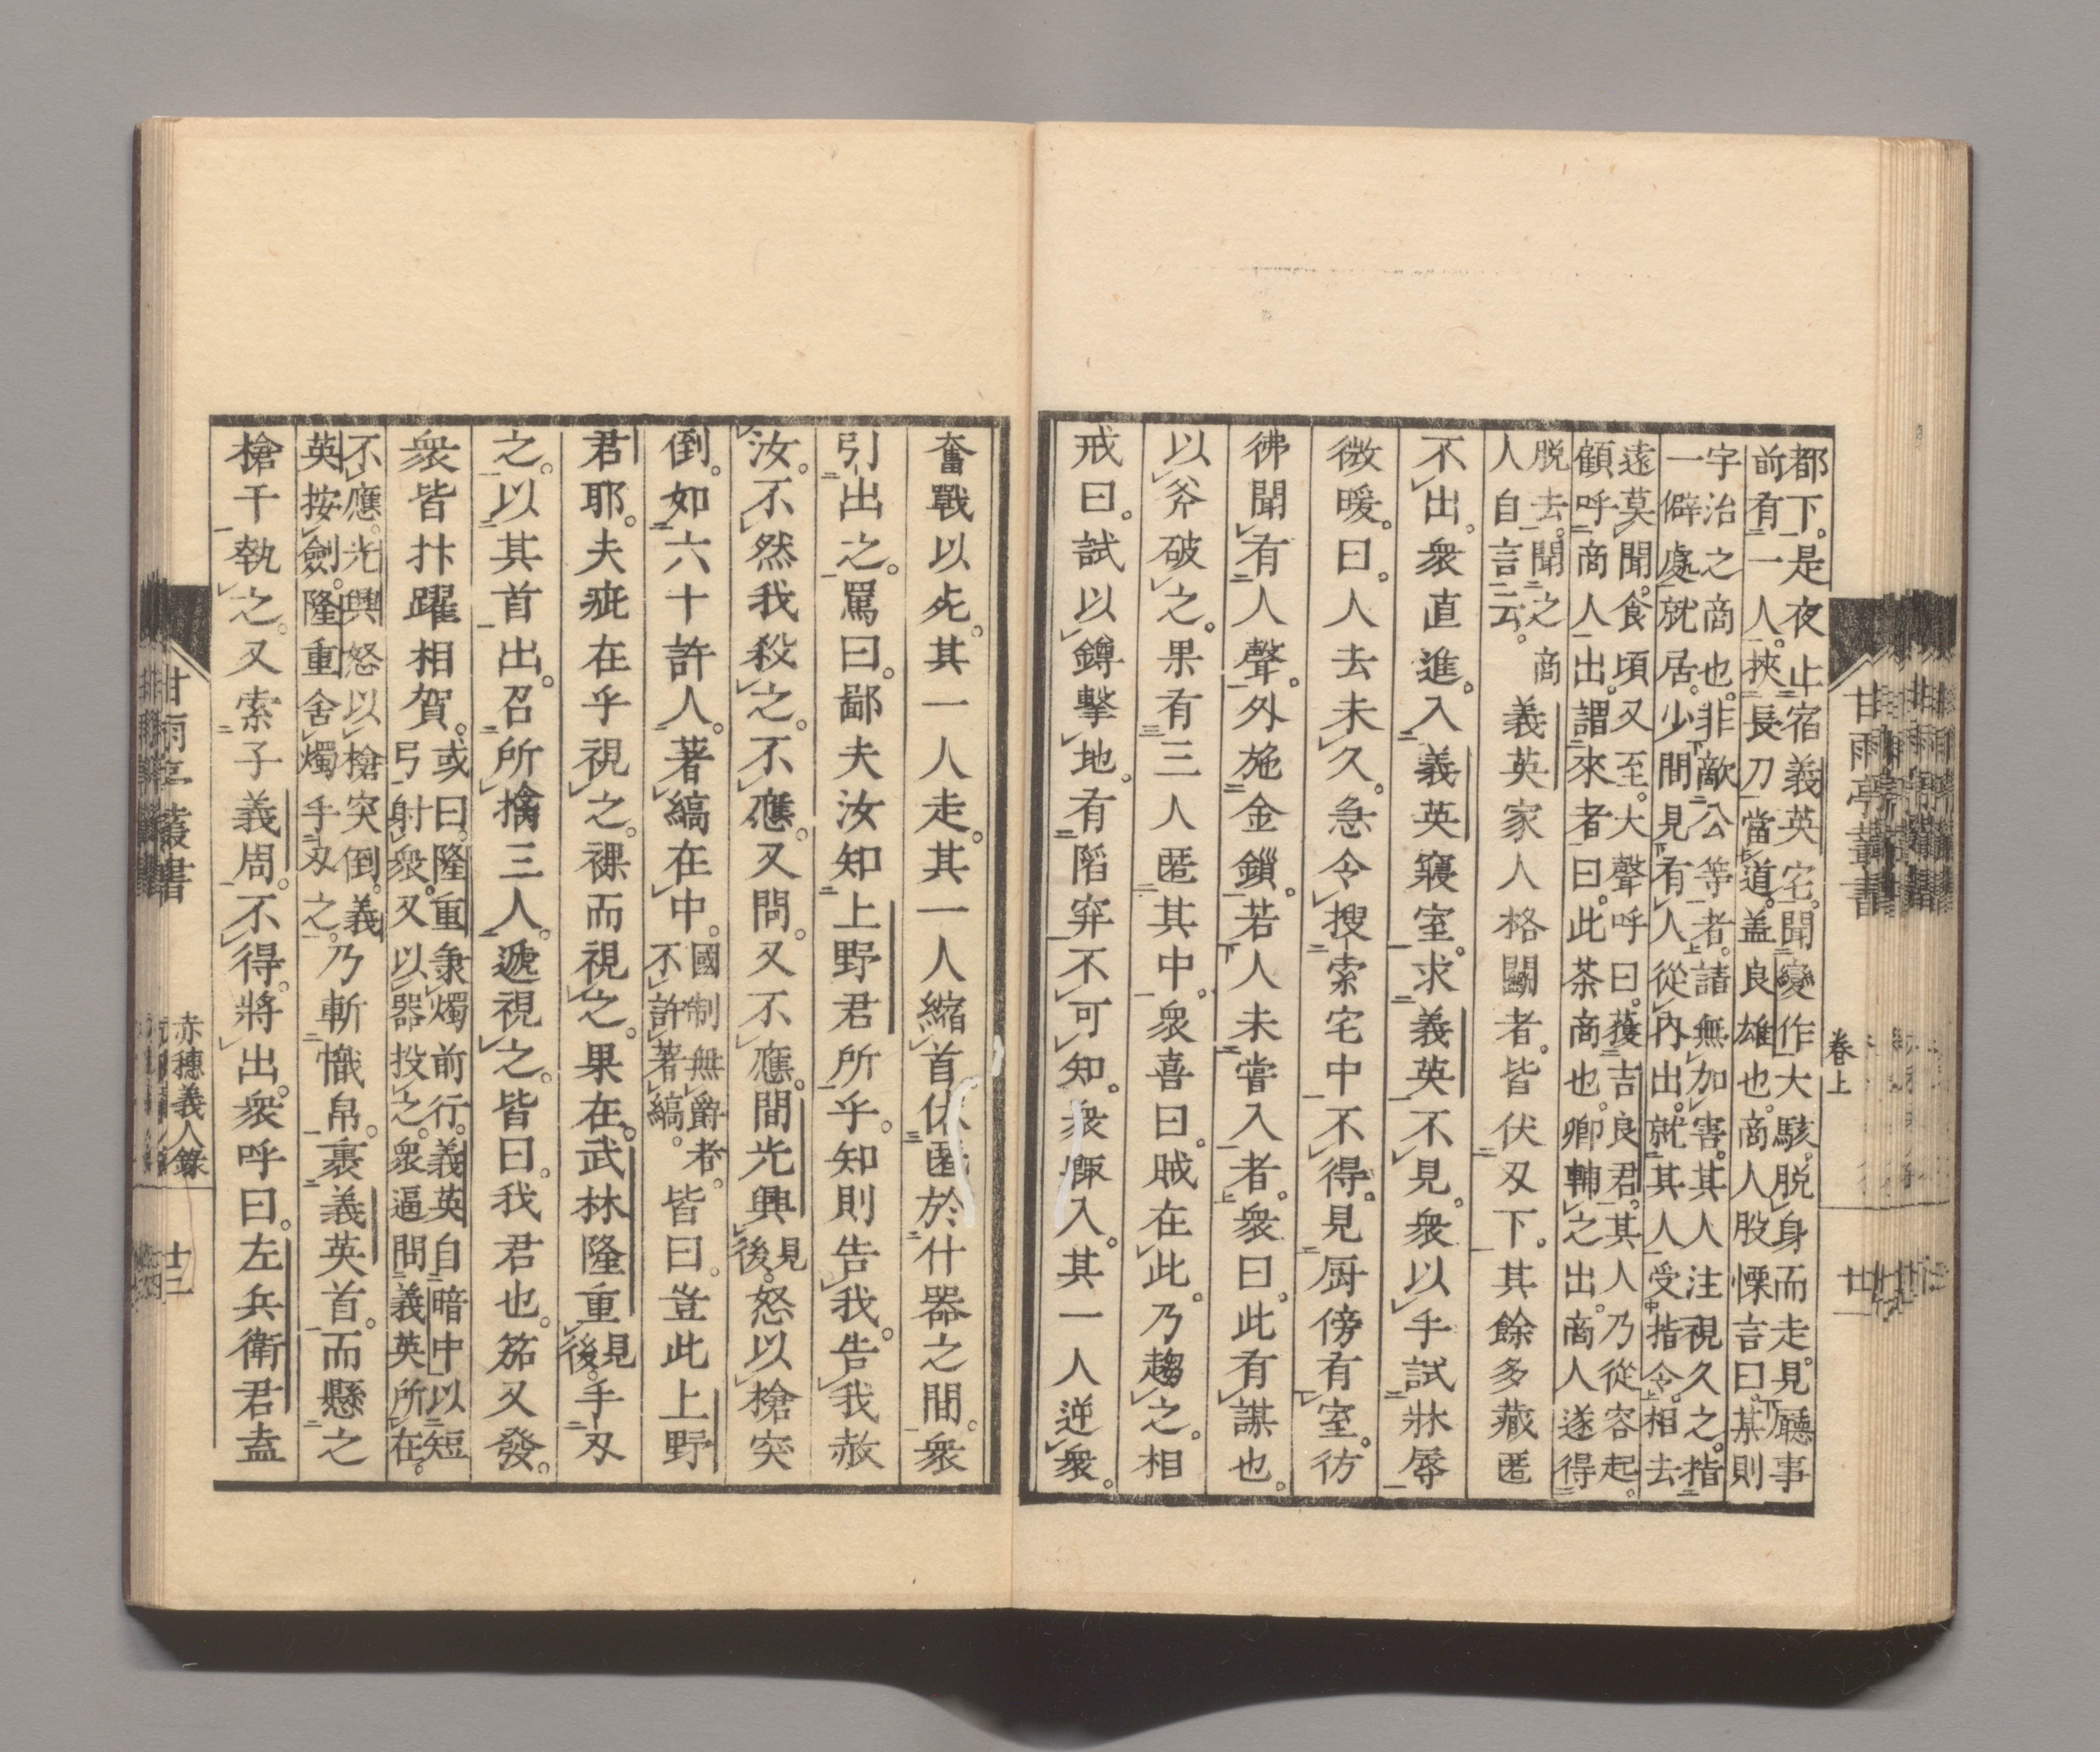 都下。是夜止宿義英宅。聞變作大駭。脱身而走。見廳事
前有一人。挾長刀當道。蓋良雄也。商人股慄言曰。某則
宇治之商也。非敵公等者。諸無加害。其人注視久之。指
一僻處就居。少間見有人從內出。就其人受指令。相去
遠莫聞。食頃又至。大聲呼曰。獲吉良君。其人乃從容起。
顧呼商人出。謂來者曰。此茶商也。卿輔之出。商人遂得
脱去。聞之商
人自言云。
義英家人格鬭者。皆伏刃下。其餘多藏匿
不出。衆直進。入義英寢室。求義英不見。衆以手試牀辱
微暖。曰。人去未久。急令搜索宅中不得。見厨傍有室。彷
彿聞有人聲。外施金鎖。若人未嘗入者。衆曰。此有謀也。
以斧破之。果有三人匿其中。衆喜曰。賊在此。乃趨之。相
戒曰。試以鐏擊地。有陷穽不可知。衆飯入。其一人逆衆。
奮戰以死。其一人走。其一人縮首伏匿於什器之間。衆
引出之。罵曰。鄙夫汝知上野君所乎。知則告我。告我赦
汝。不然我殺之。不應。又問。又不應。間光興見後。怒以槍突
倒。如六十許人。著縞在中。國制無爵者。不許著縞。皆曰。豈此上野
君耶。夫疵在乎視之。裸而視之。果在。武林隆重見後。手刃
之。以其首出。召所擒三人。遞視之。皆曰。我君也。笳又發。
衆皆抃躍相賀。或曰。隆重秉燭前行。義英自暗中以短
弓射衆。又以器投之。衆逼問義英所在。
不應。光興怒以槍突倒。義
英按劍。隆重舍燭手刃之。乃斬幟帛。裹義英首。而懸之
槍干執之。又索子義周。不得。將出。衆呼曰。左兵衛君盍
甘雨亭叢書
卷上
甘雨亭叢書
赤穗義人錄
廿二